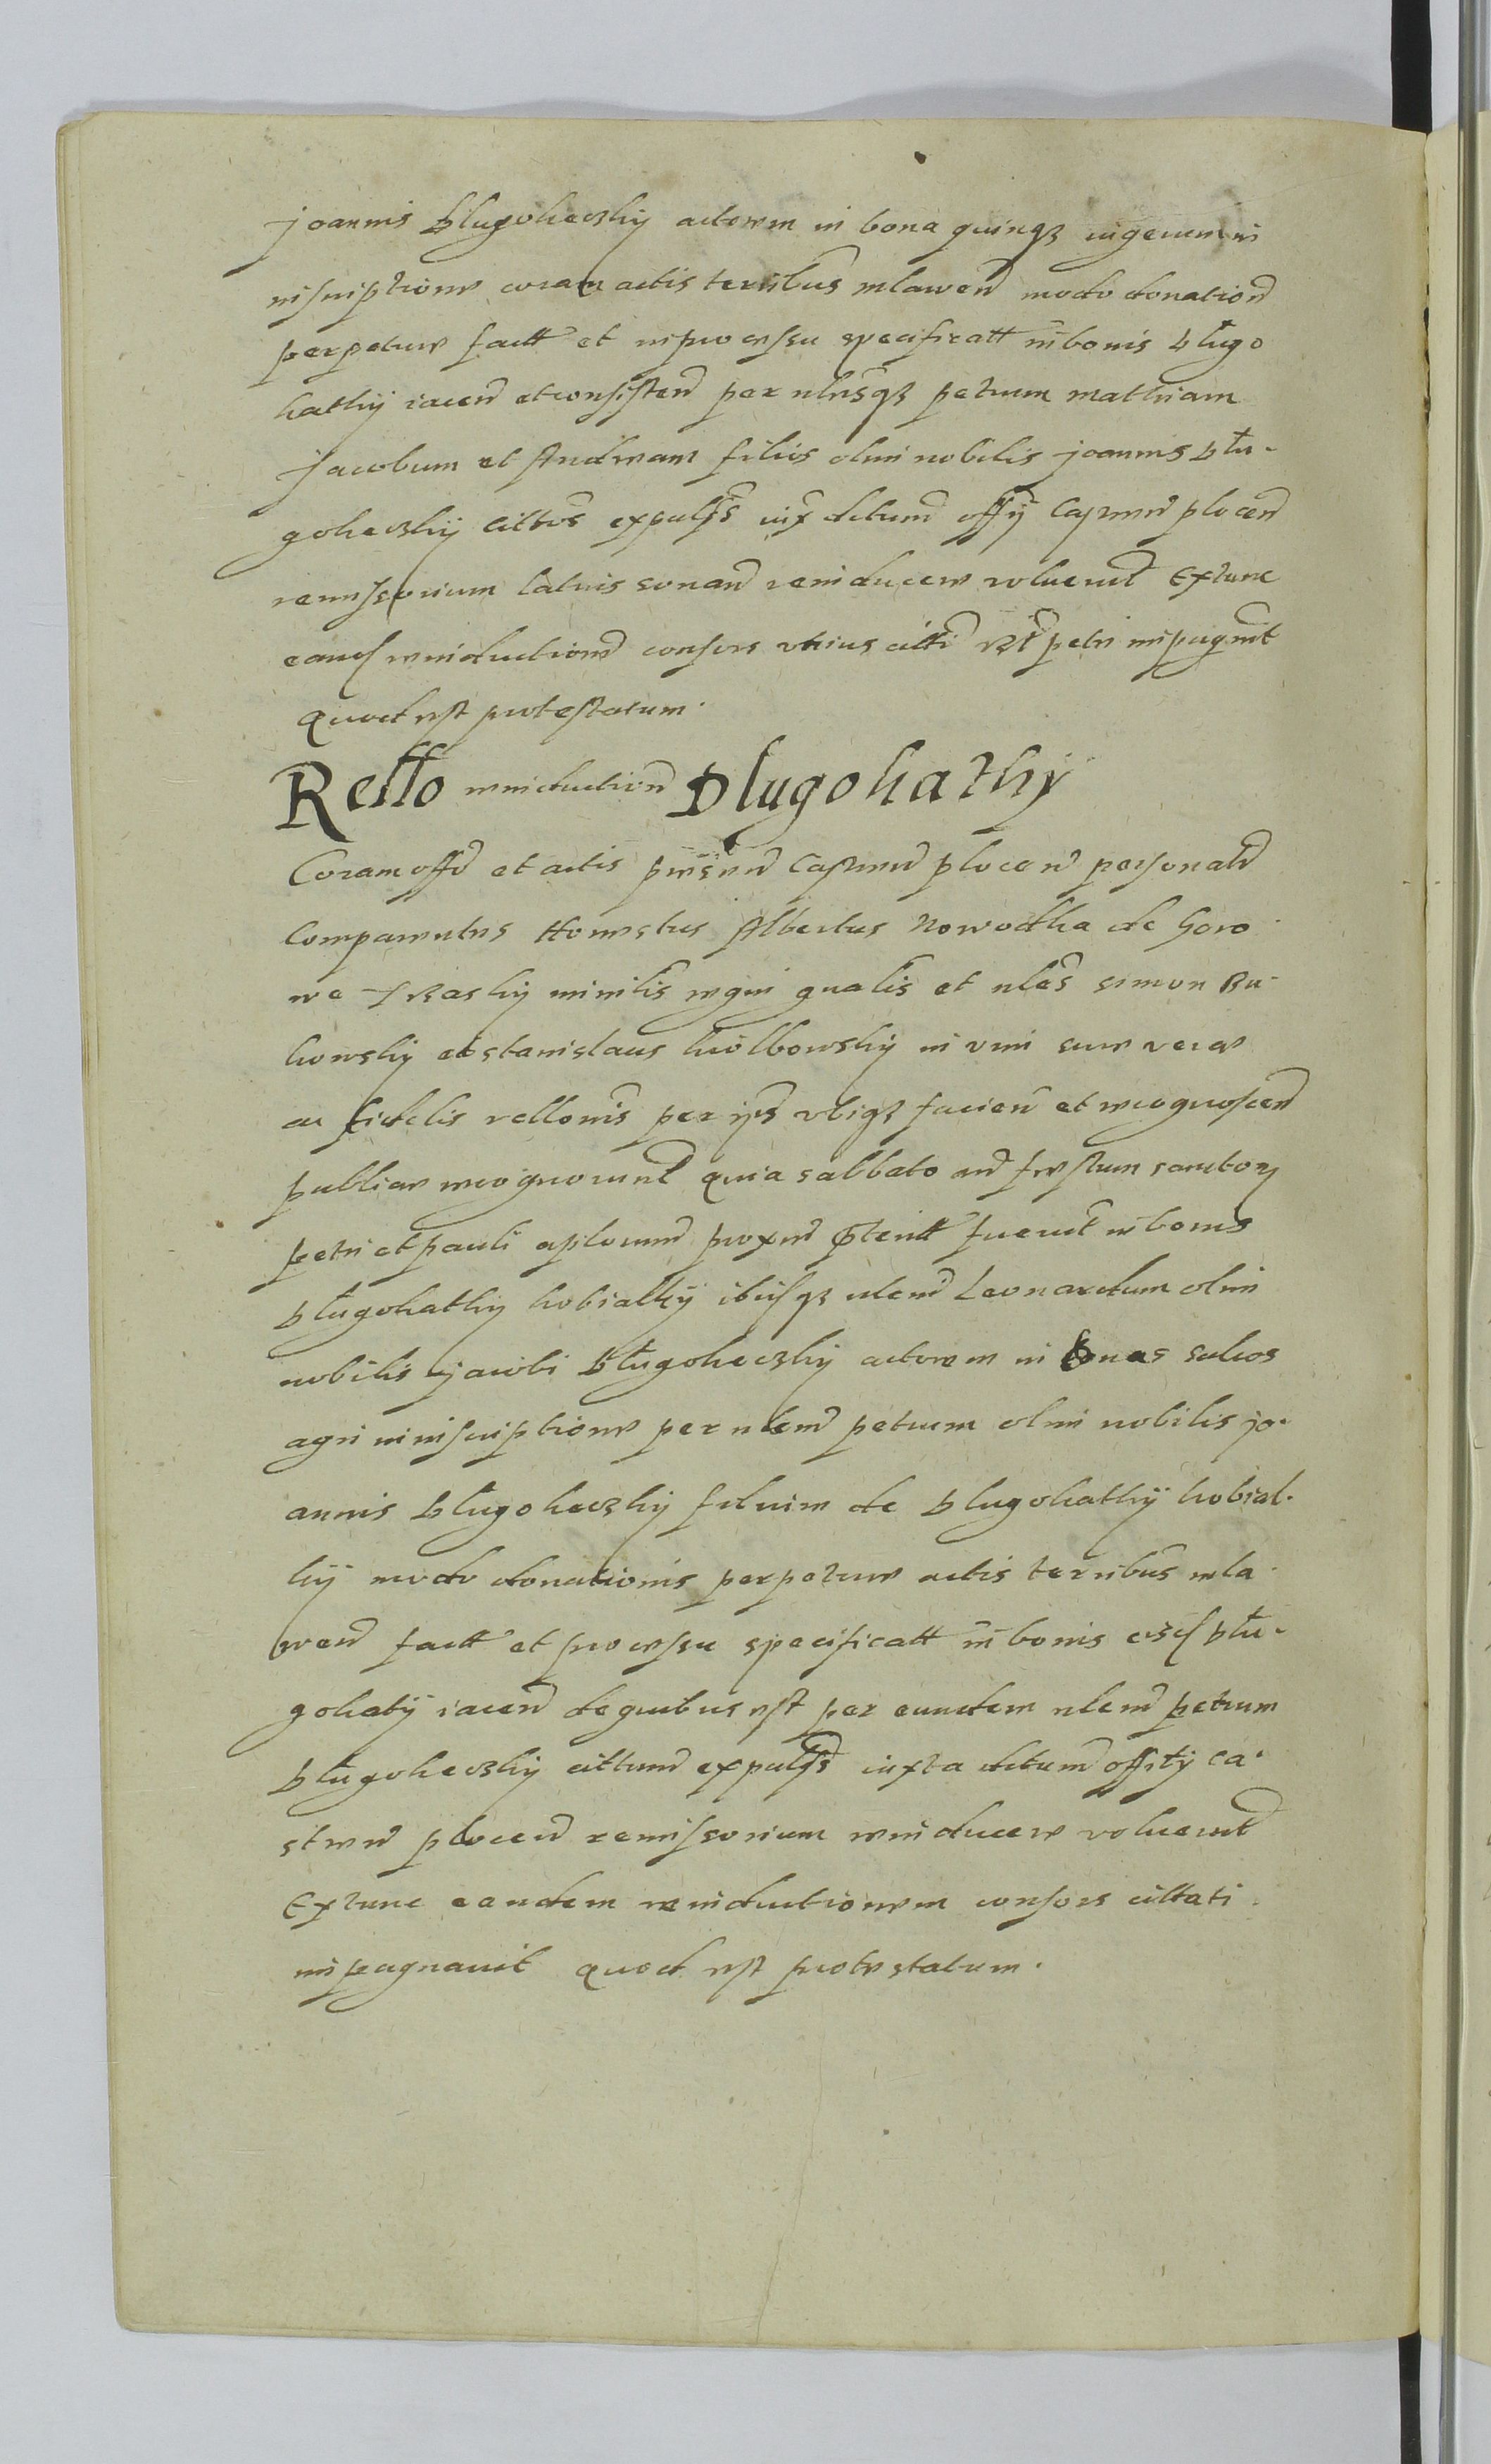 Joannis Dlugokeczky actorem in bona quinqz iugerum in
inscriptione coram actis terribus mlawen modo donation
perpetue factt et in processu specificatt in bonis Dlugo
kathy iacen et consisten per nlesqz petrum mathiam
Jacobum et Andream filios olim nobilis Joannis Dlu-
gokeczky cittos expulss iux dctum offy Castren plocen
remissorium latius sonan reinducere voluerut Extunc
eand reinductionem consors vnius citti petri impugnit
quod est protestatum.
Rello reinduction Dlugokathy
Coram offo et actis presen Castren plocen personalr
Comparentes Honestus Albertus Nowodka de Goro
we minilis regni gnalis et nles simon Ru-
kowsky et stanislaus kolbowsky in vim sue vere
ac fidelis rellonis per ips vbiqz facien et recognoscen
publice recognouerunt quia sabbato an festum sanctorz
petri et pauli aplorum proxm pterit fuerut in bonis
Dlugokathy kobialky ibisqz nlem Leonardum olim
nobilis Jacobi Dlugokeczky actorem in bonas sulcos
agri in inscriptione per nlem petrum olim nobilis Jo-
annis Dlugokeczky filium de Dlugokathy kobial-
ky modo donationis perpetue actis terribus mla-
wen factt et processu specificatt in bonis eisd Dlu-
gokaty iacen de quibus est per eundem nlem petrum
Dlugokeczky cittum expulss iuxta dctum offity ca-
stren plocen remissorium reinducere voluerut
Extunc eandem reinductionem consors cittati
impugnauit quod est protestatum.